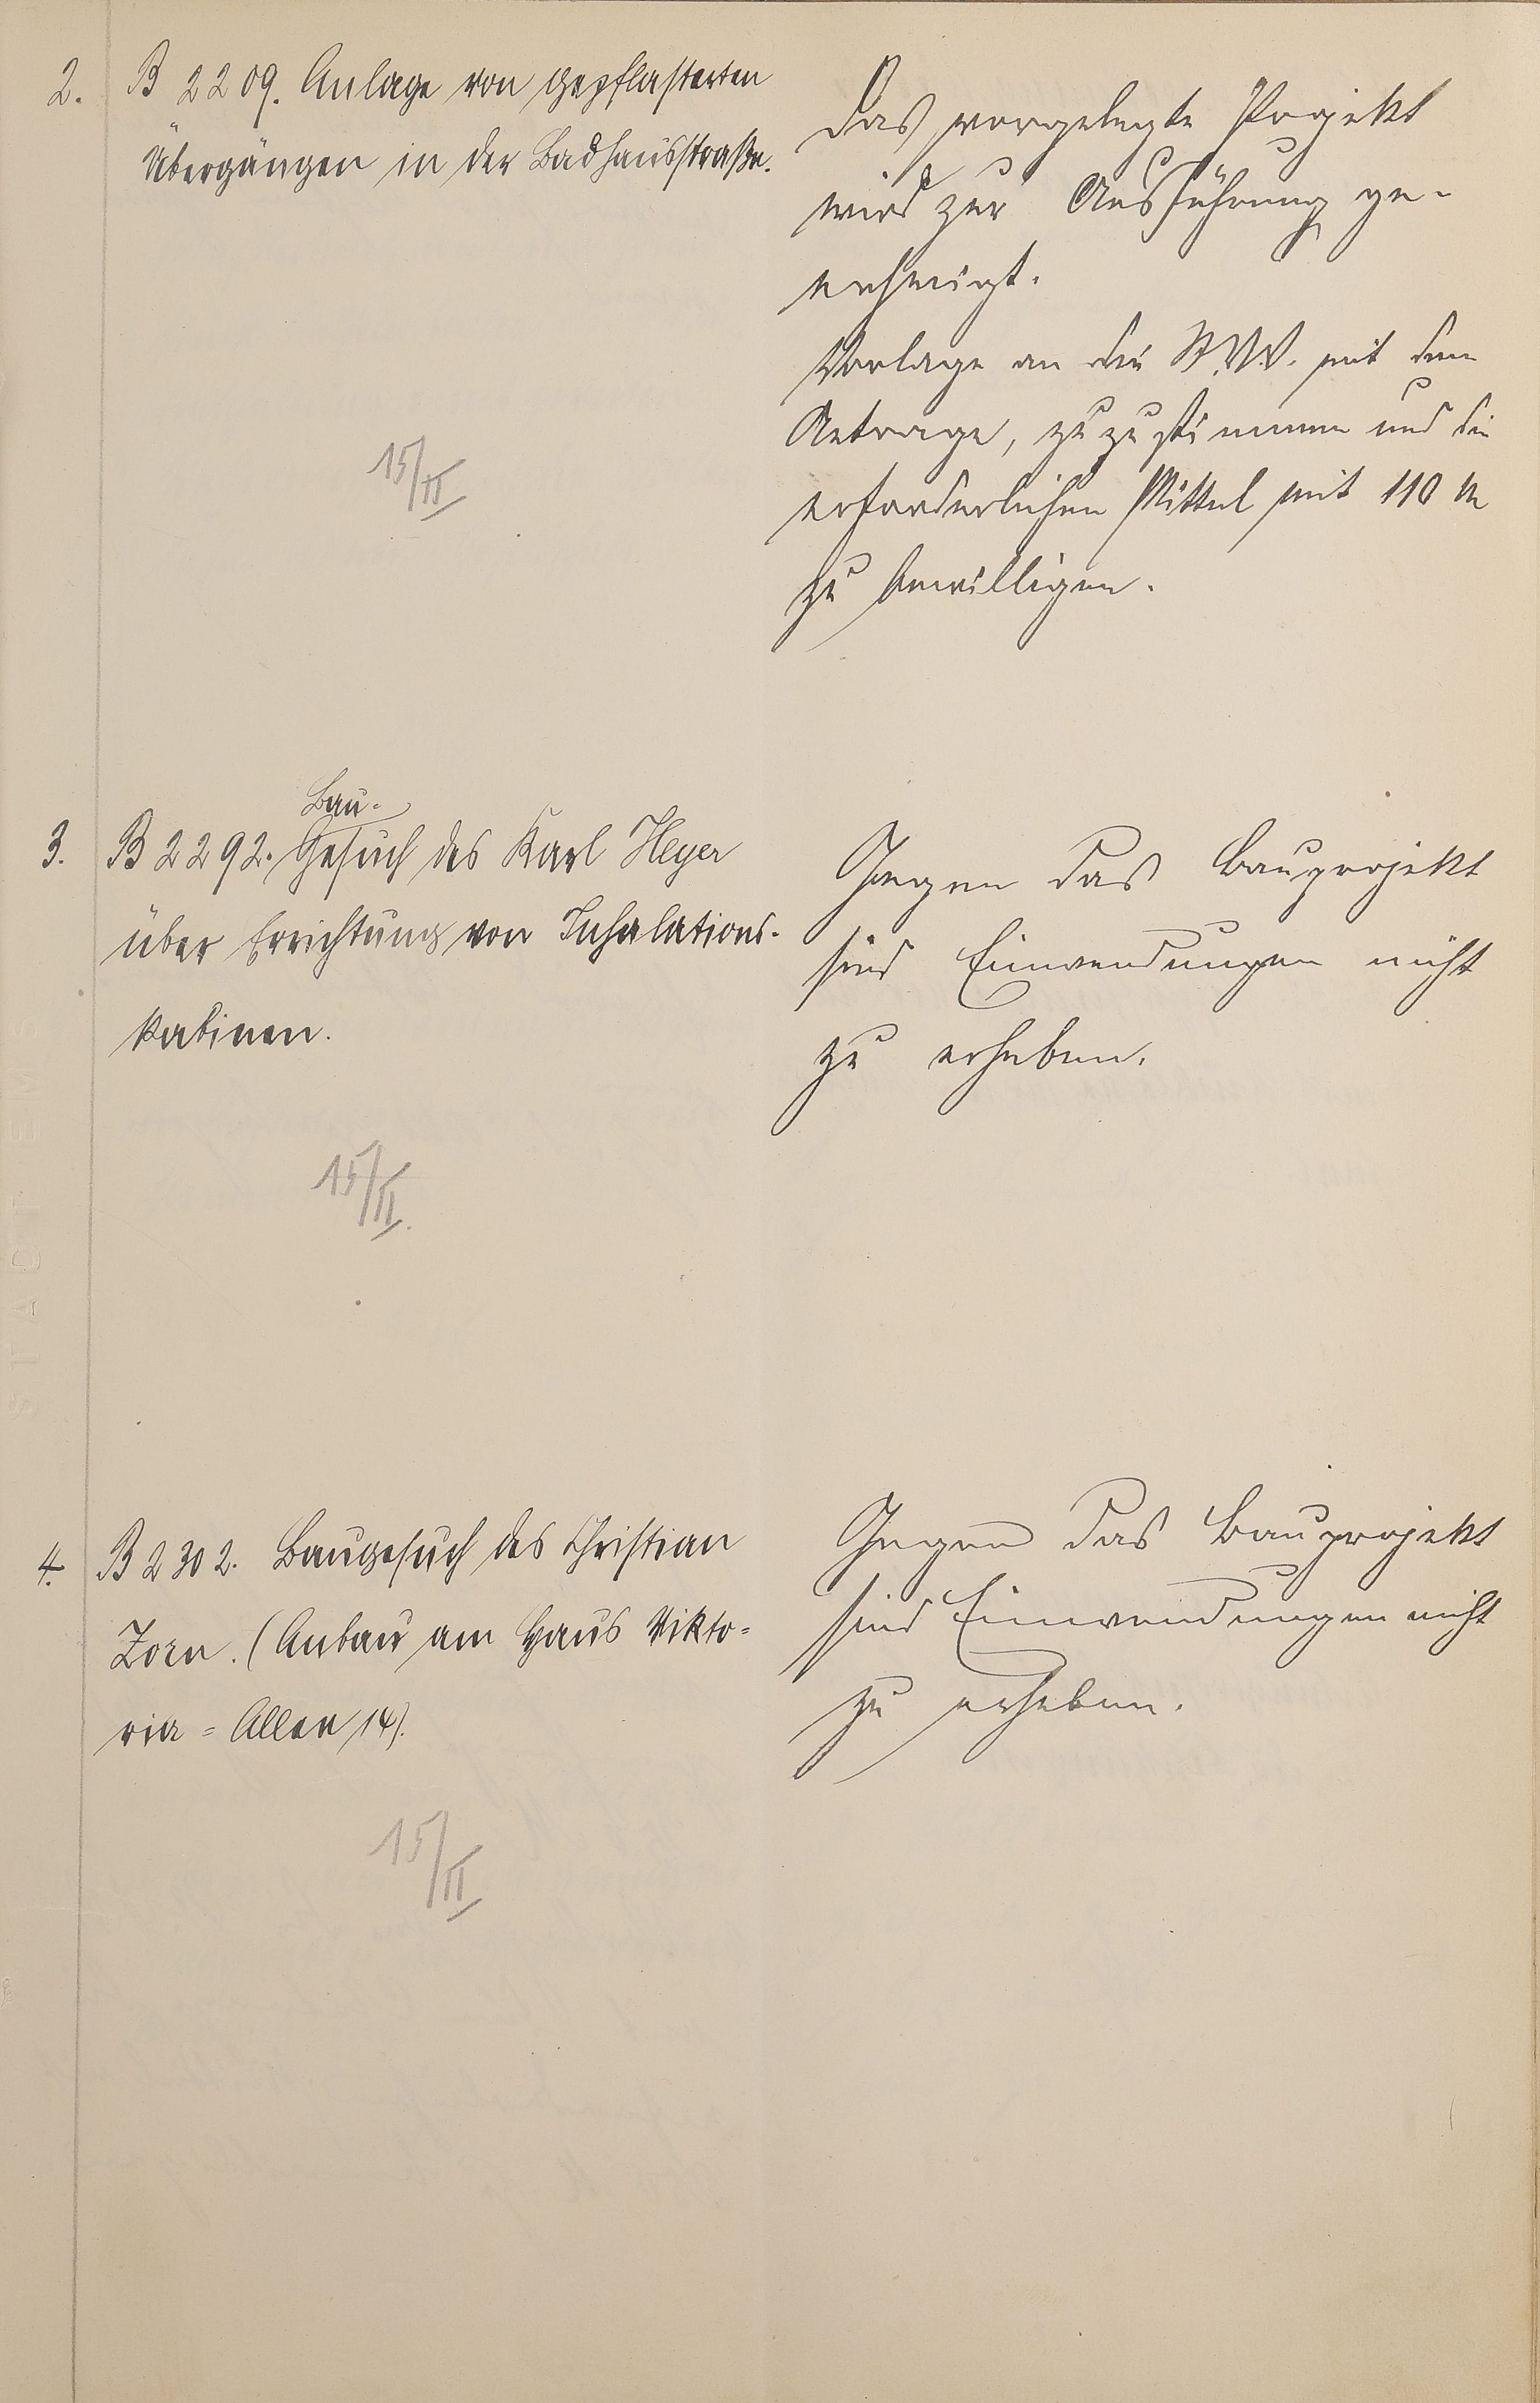 2. B 2209. Anlage von gepflasterten
Übergängen in der Badhausstraße.
15/II
Das vorgelegte Projekt
wird zur Ausführung ge-
nehmigt.
Vorlage an die St.V.V. mit dem
Antrage, zuzustimmen und die
erforderlichen Mittel mit 110 M
zu bewilligen.
Bau-
3. B 2292. Gesuch des Karl Heyer
über Errichtung von Inhalations-
kabinen.
15/II.
Gegen das Bauprojekt
sind Einwendungen nicht
zu erheben.
4. B 2302. Baugesuch des Christian
Zorn. (Anbau am Haus Vikto=
ria=Allee 14).
15/II
Gegen das Bauprojekt
sind Einwendungen nicht
zu erheben.